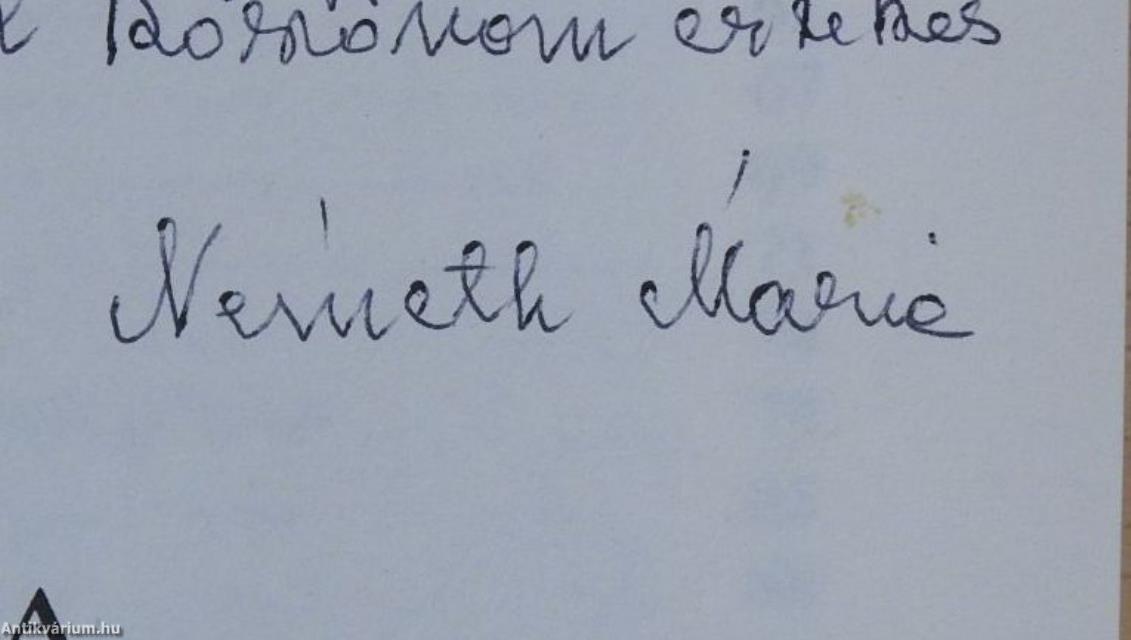 köszönöm értékes
Németh Mária
A
Antikvárium.hu